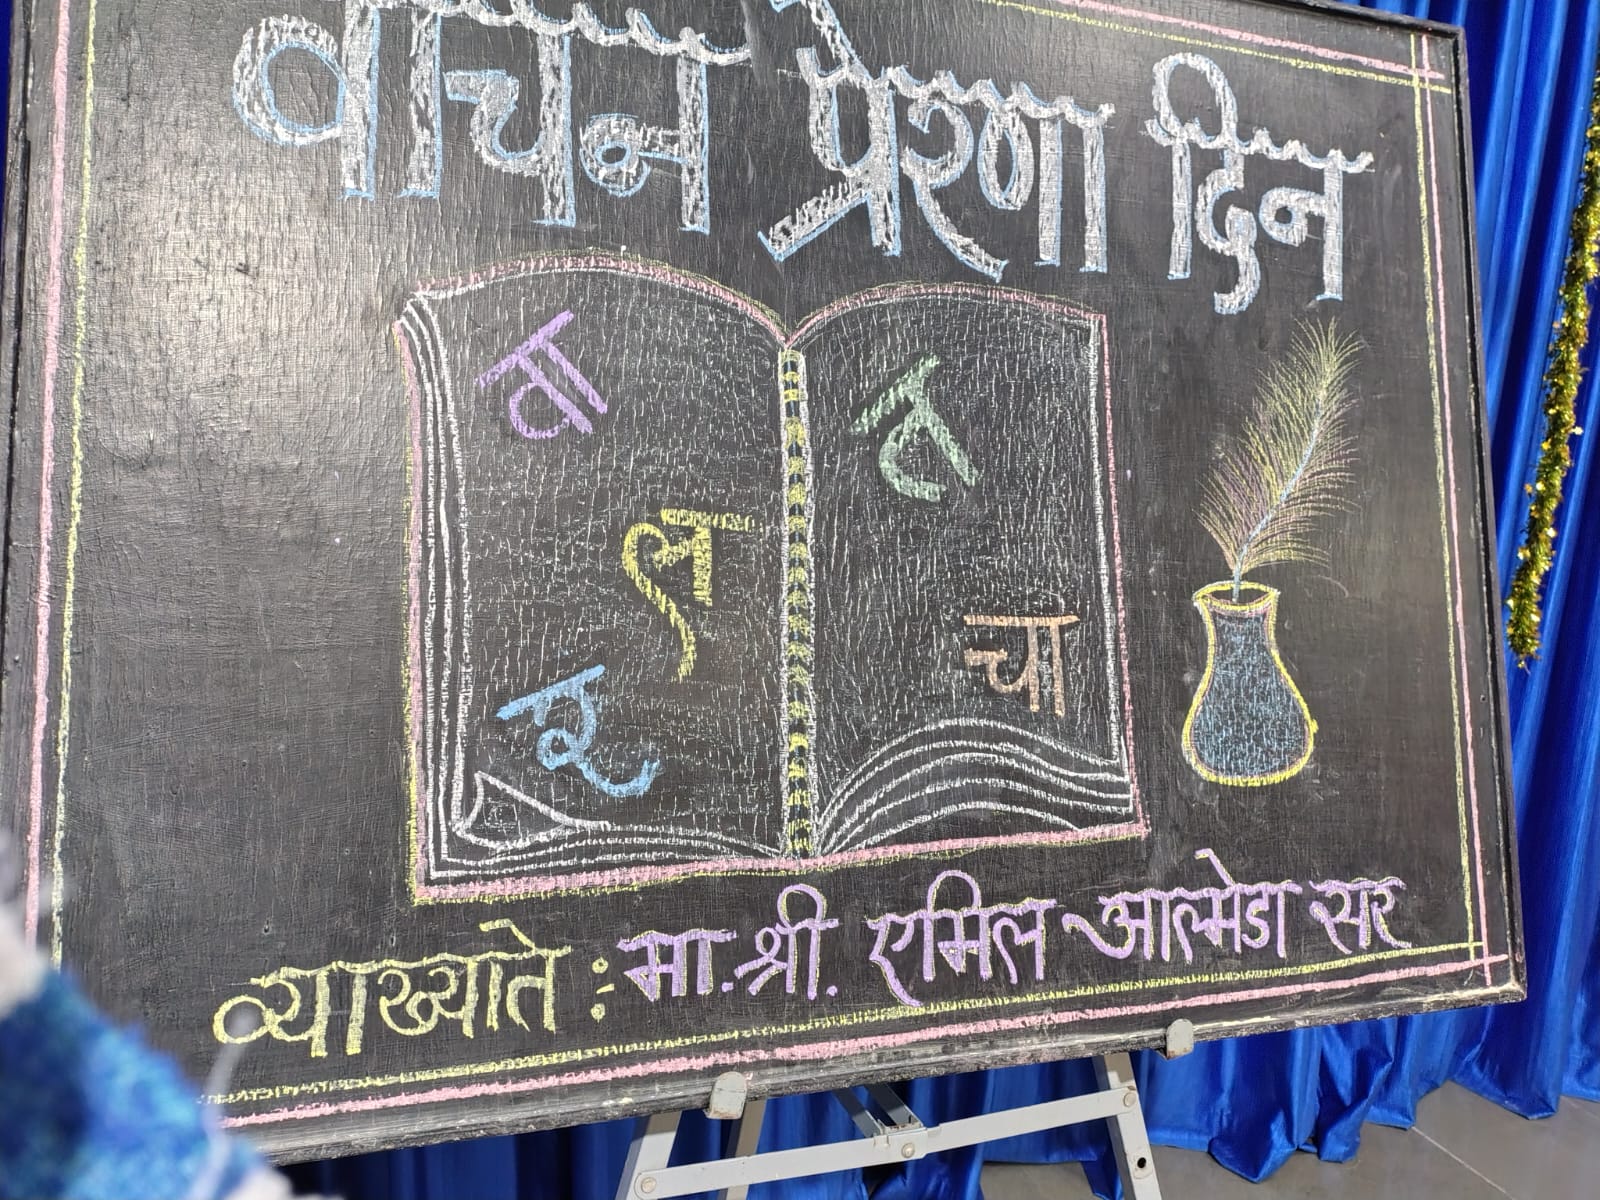 वाचन प्रेरणा दिन
वा
त
ल
चा
र
व्याख्याते : मा.श्री. एमिल आल्मेडा सर